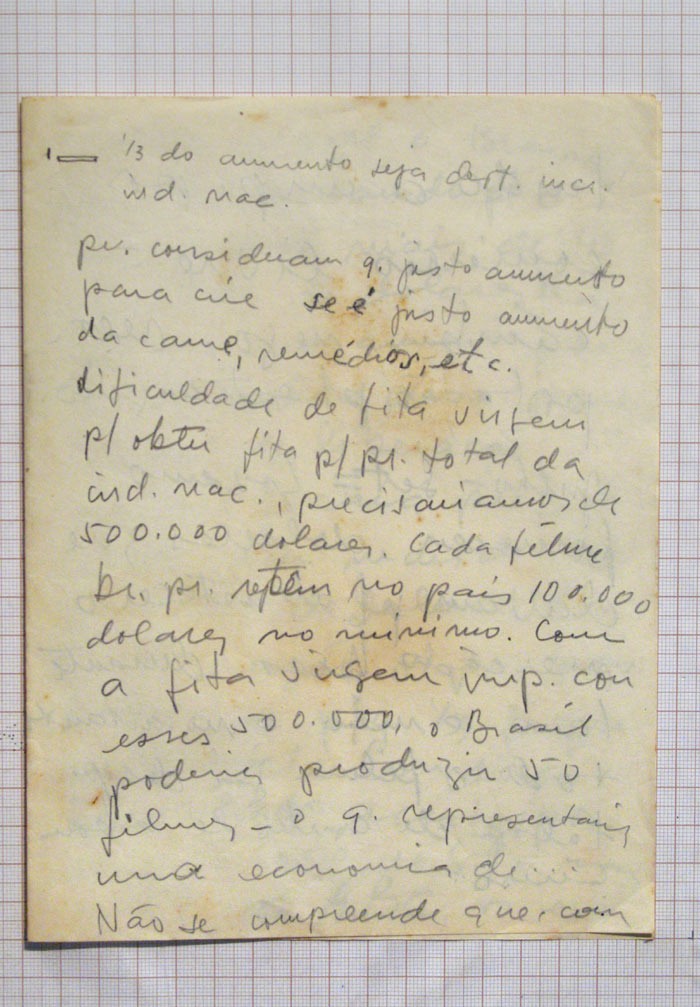 1 — 1/3 do aumento seja dest. incr.
ind. nac.
pr. consideram q. justo aumento
para cine se é justo aumento
da carne, remédios, etc.
dificuldade de fita virgem
p/ obter fita p/ pr. total da
ind. nac., precisariamos de
500.000 dolares. Cada filme
br. pr. retém no país 100.000
dolares no minimo. Com
a fita virgem imp. con
esses 500.000, o Brasil
poderia produzir 50
filmes – o q. representaria
uma economia de...
Não se compreende que, com